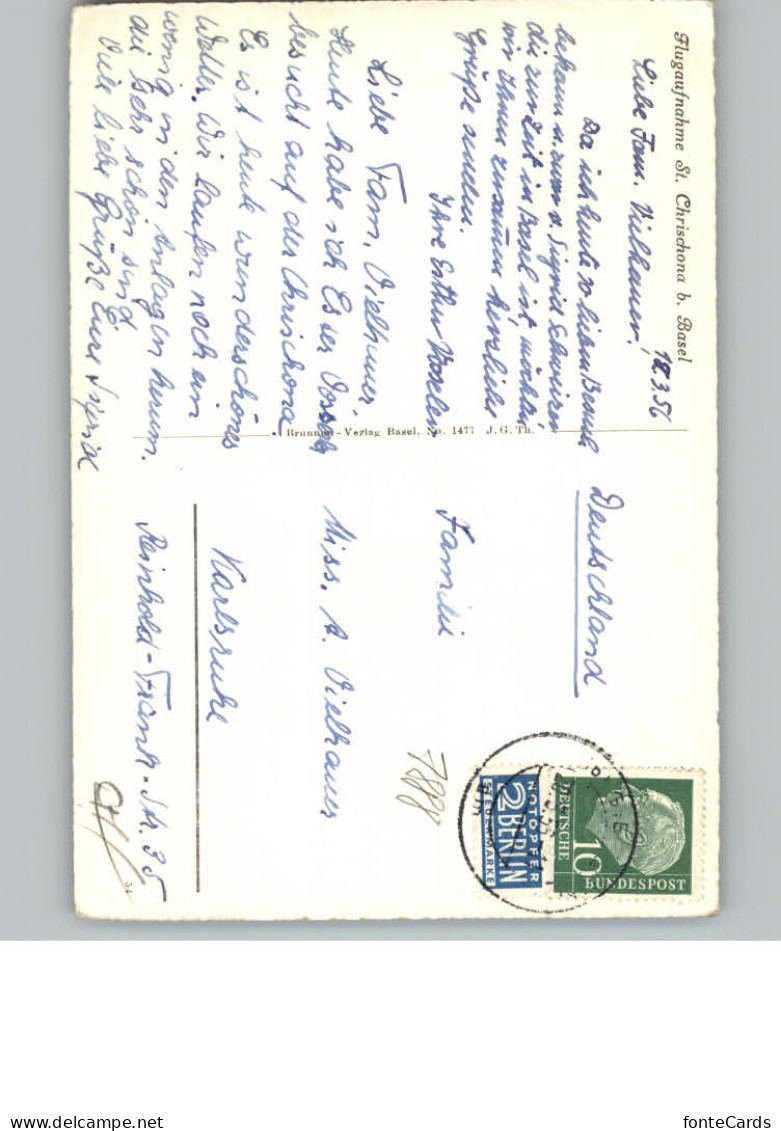 Flugaufnahme St. Chrischona b. Basel
18.3.56
Liebe Fam. Vielhauer!
Da ich heute v. lieben Besuch
bekam u. zwar v. Sigrid
die zurzeit in Basel ist, möchten
wir Ihnen zusammen herzliche
Grüße senden.
Ihre Esther
Liebe Fam. Vielhauer,
Heute habe ich Esther
besucht auf der Chrischona
Es ist heute wunderschönes
Wetter. Wir laufen noch ein
wenig in den Anlagen herum.
die sehr schön sind
Viele liebe Grüße Eure Sigrid
Brunnen-Verlag Basel. No. 1477 J. G. Th.
Deutschland
Familie
Miss. A. Vielhauer
Karlsruhe
Reinhold-Frank-Str. 35
54
NOTOPFER
2 BERLIN
STEUERMARKE
DEUTSCHE
10
BUNDESPOST
fonteCards